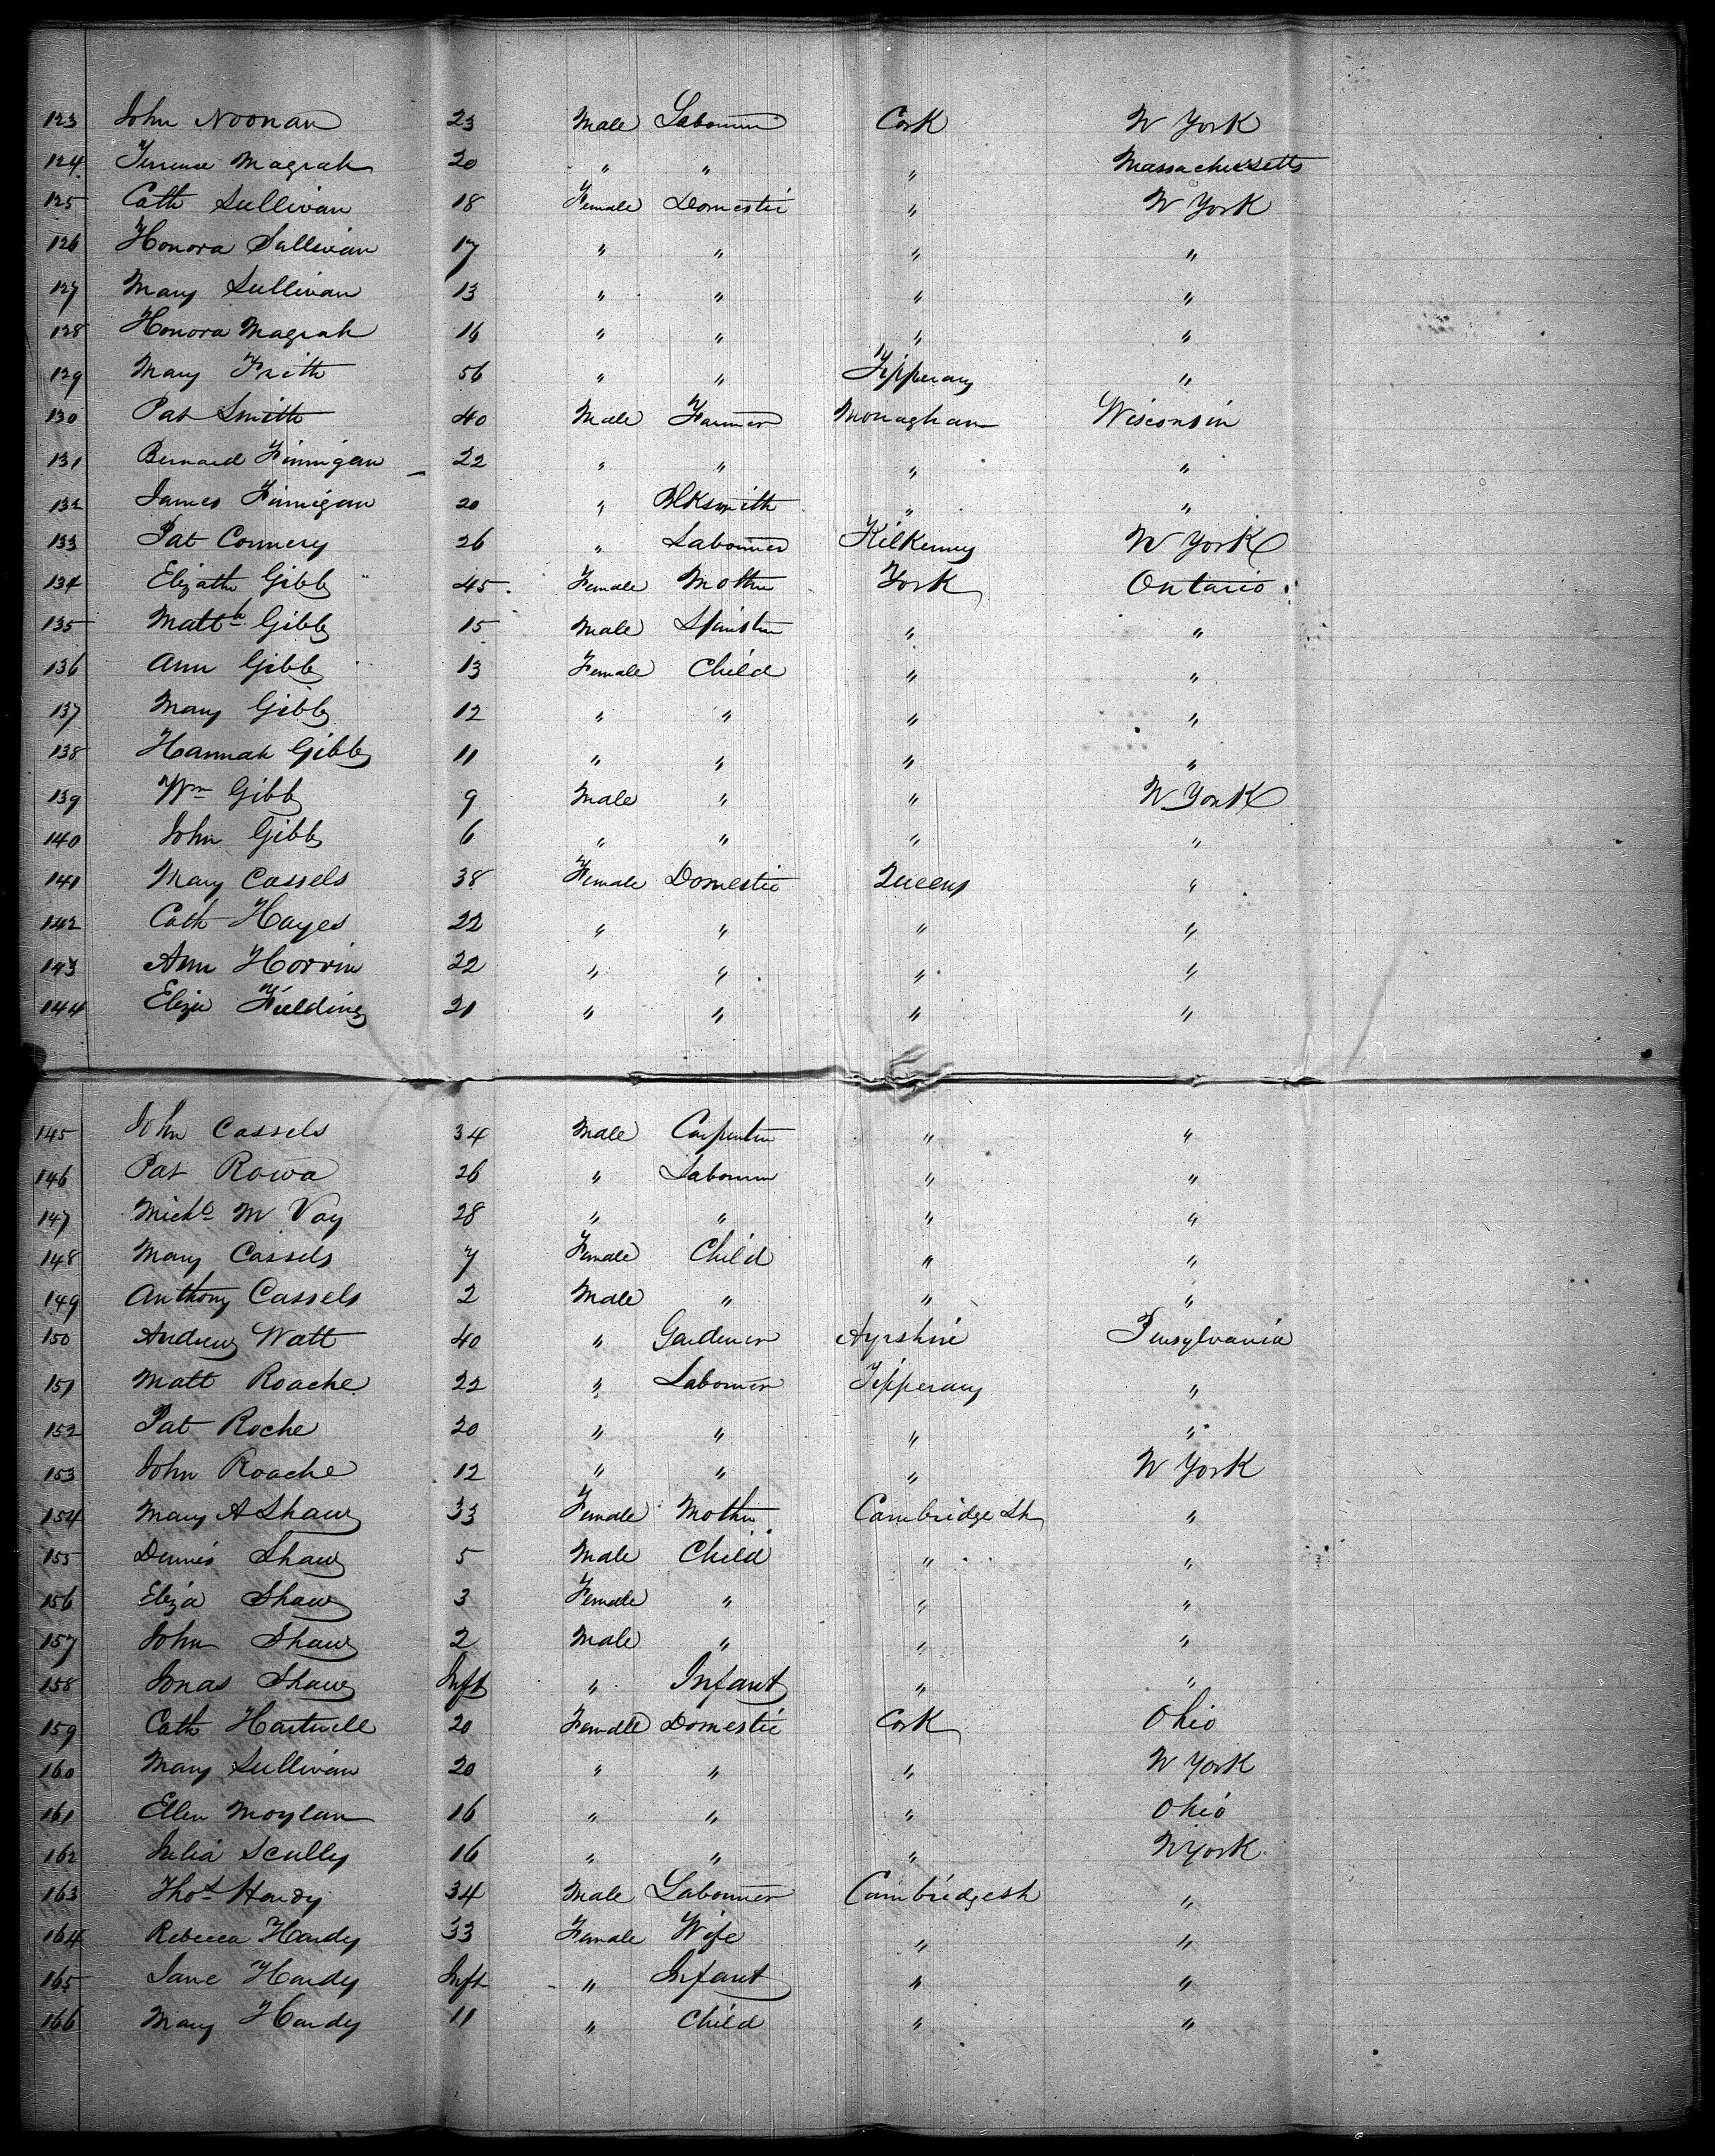 123 John Noonan 23 Male Labourer Cork N York
124 Terrence Magrah 20 " " " Massachusetts
125 Cath Sullivan 18 Female Domestic " N York
126 Honora Sullivan 17 " " " "
127 Mary Sullivan 13 " " " "
128 Honora Magrah 16 " " " "
129 Mary Frith 56 " " Tipperary "
130 Pat Smith 40 Male Farmer Monaghan Wisconsin
131 Bernard Finnigan 22 " " " "
132 James Finnigan 20 " Blksmith " "
133 Pat Connery 26 " Labourer Kilkenny N York
134 Elizath Gibb 45 Female Mother York Ontario
135 Matth Gibb 15 Male Spinster " "
136 Ann Gibb 13 Female Child " "
137 Mary Gibb 12 " " " "
138 Hannah Gibb 11 " " " "
139 Wm Gibb 9 Male " " N York
140 John Gibb 6 " " " "
141 Mary Cassels 38 Female Domestic Queens "
142 Cath Hayes 22 " " " "
143 Ann Horrin 22 " " " "
144 Eliza Fielding 21 " " " "
145 John Cassels 34 Male Carpenter " "
146 Pat Rowa 26 " Labourer " "
147 Michl M Vay 28 " " " "
148 Mary Cassels 7 Female Child " "
149 Anthony Cassels 2 Male " " "
150 Andrew Watt 40 " Gardener Ayrshire Pensylvania
151 Matt Roache 22 " Labourer Tipperary "
152 Pat Roche 20 " " " "
153 John Roache 12 " " " N York
154 Mary A Shaw 33 Female Mother Cambridge Sh "
155 Dennis Shaw 5 Male Child " "
156 Eliza Shaw 3 Female " " "
157 John Shaw 2 Male " " "
158 Jonas Shaw Inft " Infant " "
159 Cath Hartwell 20 Female Domestic Cork Ohio
160 Mary Sullivan 20 " " " N York
161 Ellen Moylan 16 " " " Ohio
162 Julia Scully 16 " " " N York
163 Thos Hardy 34 Male Labourer Cambridgesh "
164 Rebecca Hardy 33 Female Wife " "
165 Jane Hardy Inft " Infant " "
166 Mary Hardy 11 " Child " "